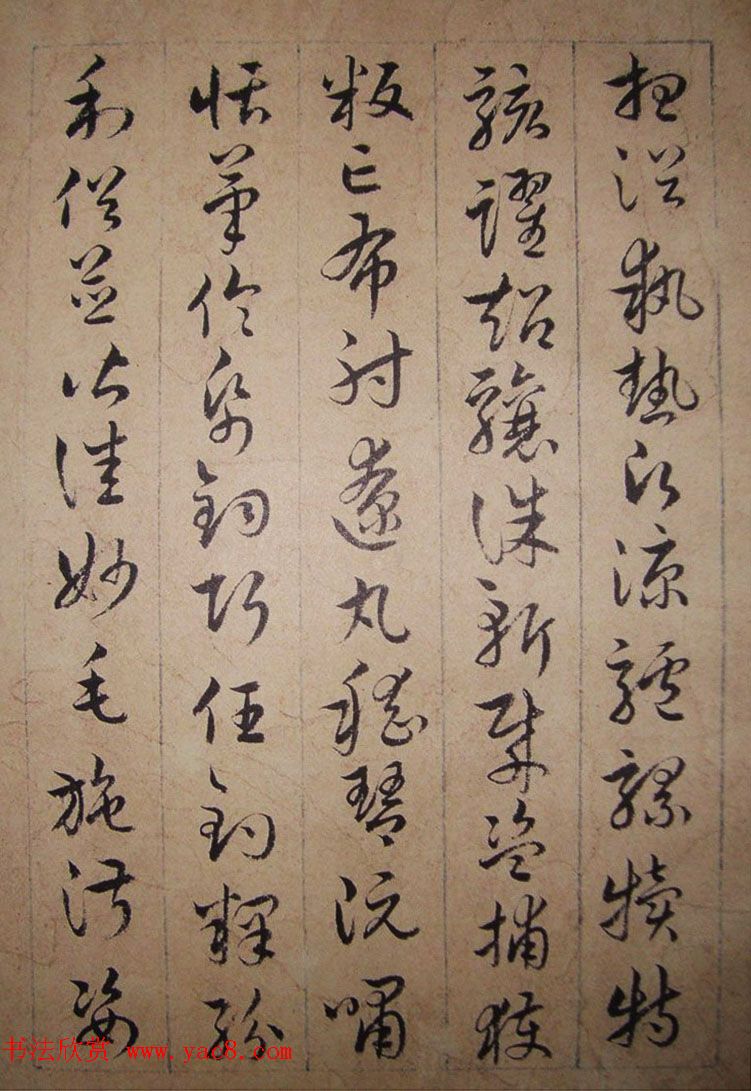 想浴執熱願涼驢騾犢特
駭躍超驤誅斬賊盜捕獲
叛亡布射遼丸嵇琴阮嘯
恬筆倫紙鈞巧任釣釋紛
利俗並皆佳妙毛施淑姿
书法欣赏 www.yac8.com